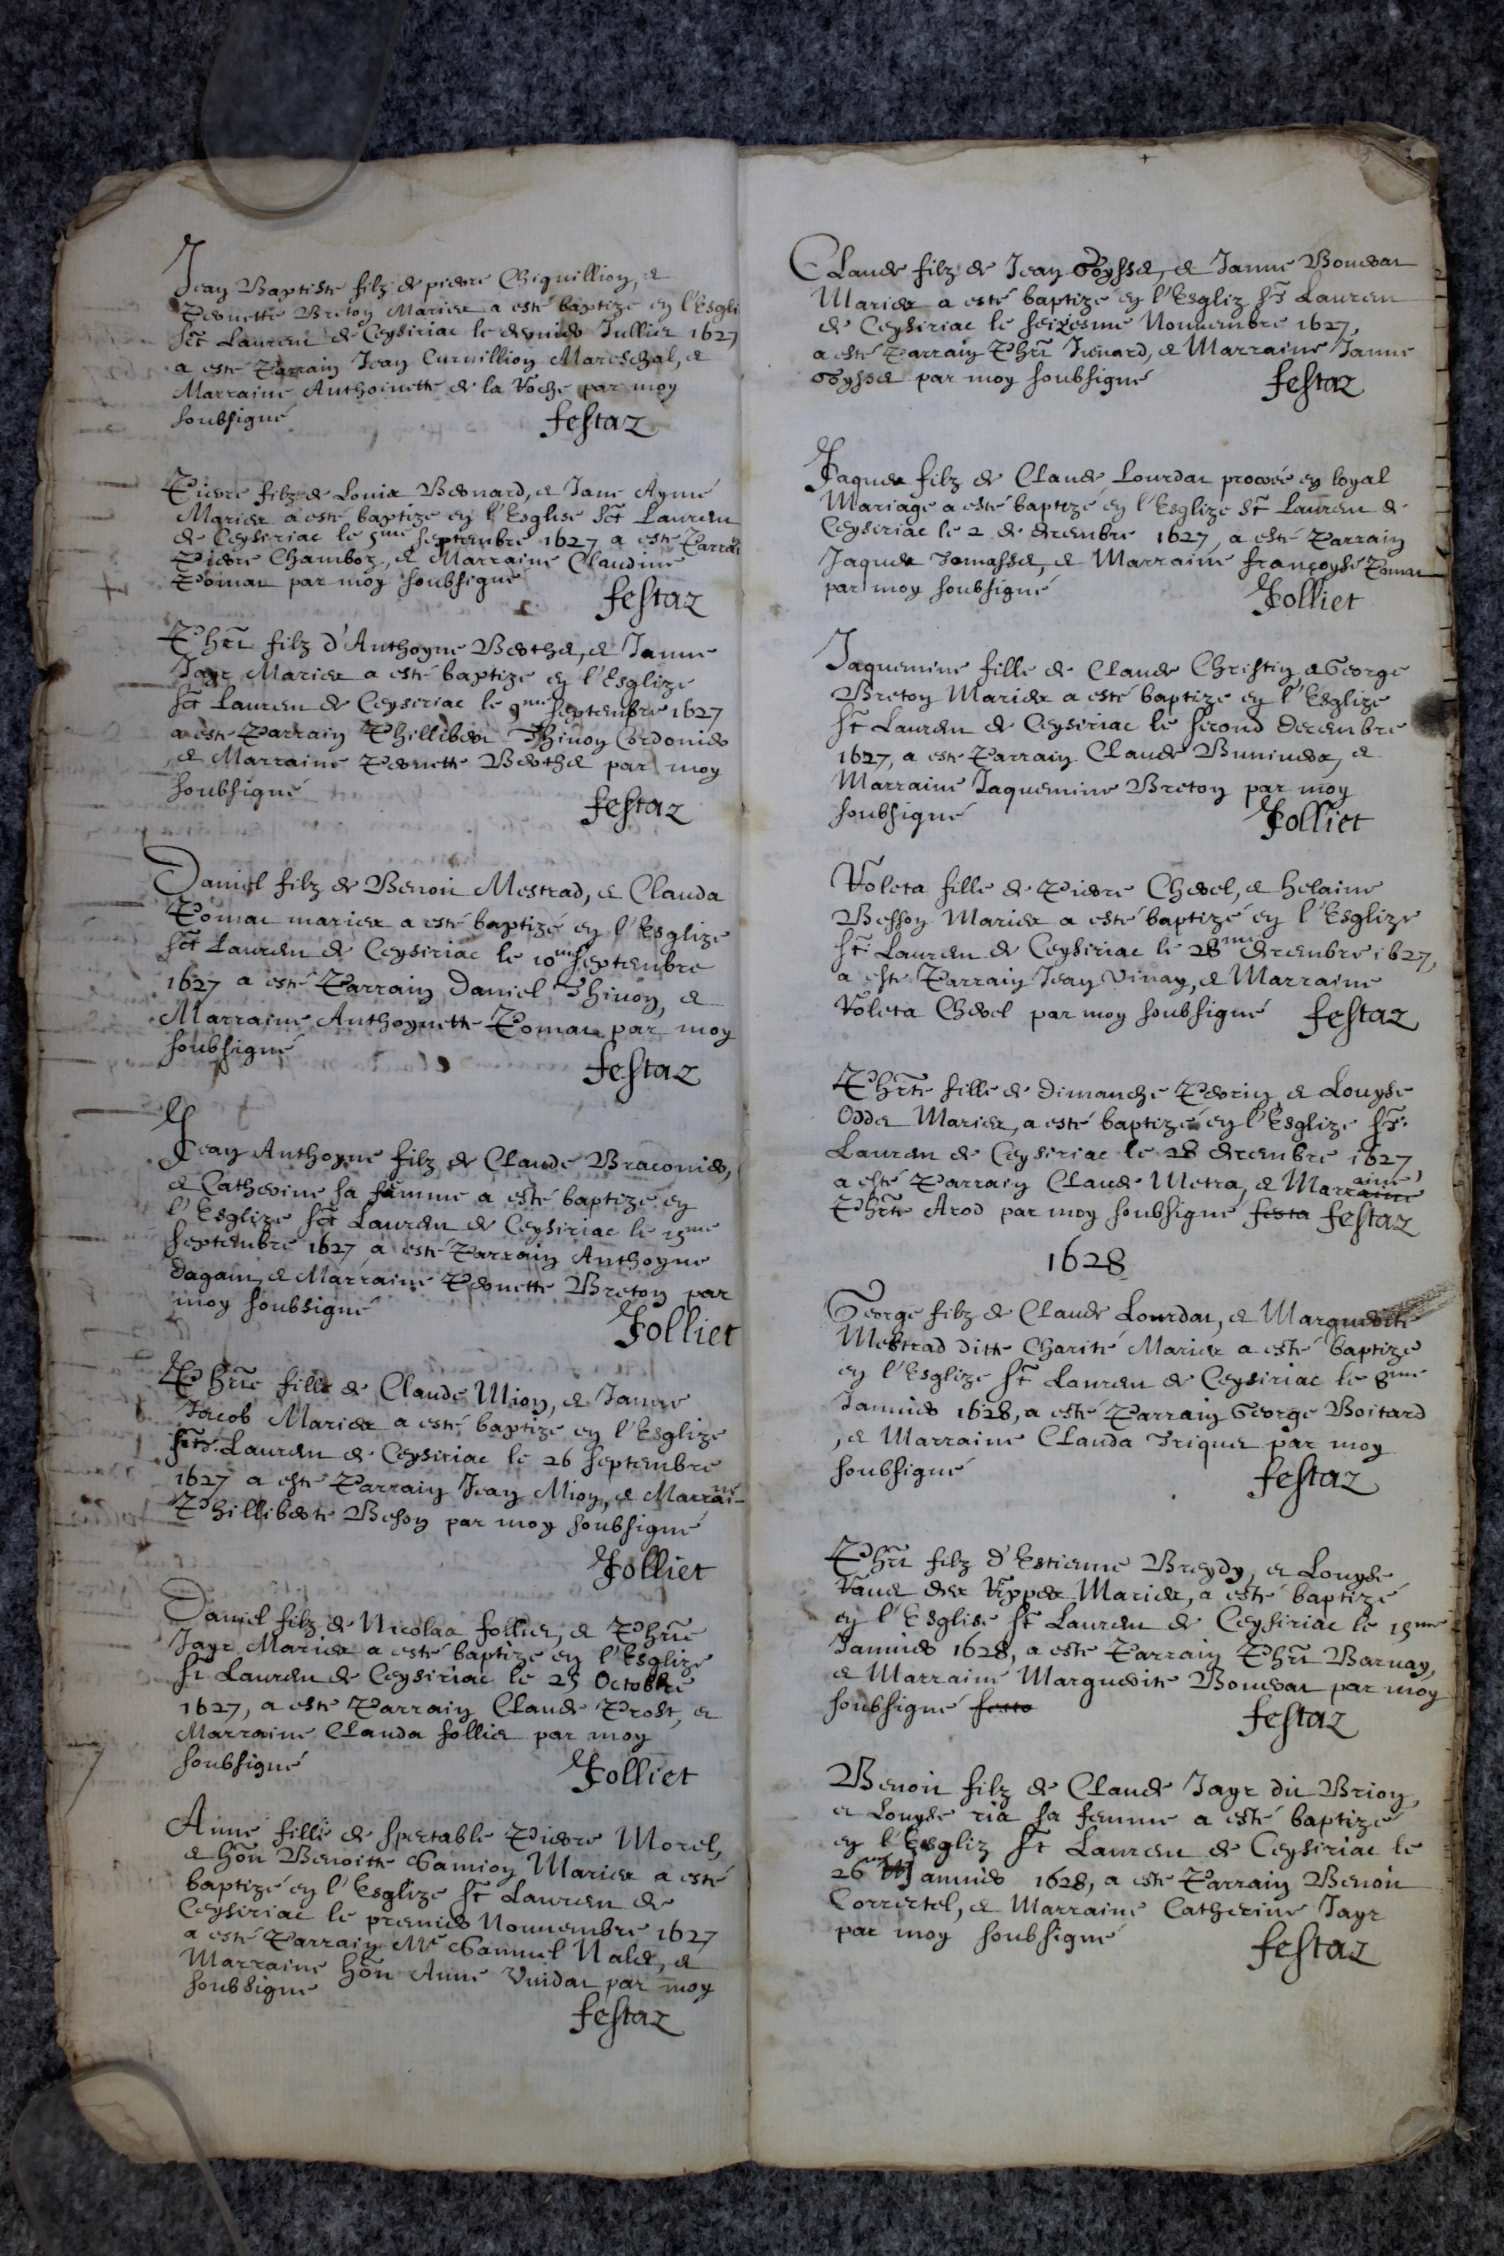 Jean Baptiste filz de pierre Chiquillion, et
Pernette Breton Mariez a esté baptizé en l'Esgli
sct Laurent de Ceysiriac le dernier Jullier 1627
a esté Parrain Jean Curnillion Mareschal, et
Marraine Anthoinette de la Roche par moy
soubsigné
festaz
Pierre filz de Louis Bernard, et Jane Aymé
Mariez a esté baptizé en l'Esglise sct Laurent
de Ceysiriac le 5me septembre 1627 a esté Parrai
Pierre Chamboz, et Marraine Claudine
Pomat par moy soubsigné
festaz
Phert filz d'Anthoyne Berthet, et Janne
Jayr Mariez a esté baptizé en l'Esglize
sct Laurent de Ceysiriac le 9me septembre 1627
a esté Parrain Phillibert Thivoy Cordonier
et Marraine Pernette Berthet par moy
soubsigné
festaz
Daniel filz de Benoit Mestrad, et Clauda
Pomat mariez a esté baptizé en l'Esglize
sct Laurent de Ceysiriac le 10me septembre
1627 a esté Parrain Daniel Thivoy, et
Marraine Anthoynette Pomat par moy
soubsigné
festaz
Jean Anthoyne filz de Claude Braconier,
et Catherine sa femme a esté baptizé en
l'Esglize sct Laurent de Ceysiriac le 15me
septembre 1627 a esté Parrain Anthoyne
Dagain, et Marraine Pernette Breton par
moy soubsigné
Jolliet
Pherte fille de Claude Mion, et Janne
Jacob Mariez a esté baptizé en l'Esglize
sct Laurent de Ceysiriac le 26 septembre
1627 a esté Parrain Jean Mion, et Marraine
Philliberte Beson par moy soubsigné
Jolliet
Daniel filz de Nicolas follier, et Pherte
Jayr Mariez a esté baptizé en l'Esglize
st Laurent de Ceysiriac le 25 Octobre
1627, a esté Parrain Claude Prost, et
Marraine Clauda follier par moy
soubsigné
Jolliet
Anne fille de spectable Pierre Morel,
et hon Benoitte Samion Mariez a esté
baptizé en l'Esglize st Laurent de
Ceysiriac le premier Nouuembre 1627
a esté Parrain Me Samuel Nalet, et
Marraine hon Anne Vuidat par moy
soubsigné
festaz
Claude filz de Jean Goysset, et Janne Bouvat
Mariez a esté baptizé en l'Esgliz st Laurent
de Ceysiriac le seiziesme Nouuembre 1627,
a esté Parrain Phert Juenard, et Marraine Janne
Goysset par moy soubsigné
festaz
Jaques filz de Claude Lourdat procréé en loyal
Mariage a esté baptizé en l'Esglize st Laurent de
Ceyseriac le 2 de decembre 1627, a esté Parrain
Jaques Tomasset, et Marraine françoyse Pomat
par moy soubsigné
Jolliet
Jaquemine fille de Claude Christin, et George
Breton Mariez a esté baptizé en l'Esglize
st Laurent de Ceysiriac le second decembre
1627, a esté Parrain Claude Buninder, et
Marraine Jaquemine Breton par moy
soubsigné
Jolliet
Roleta fille de Pierre Chevel, et helaine
Besson Mariez a esté baptizé en l'Esglize
st Laurent de Ceysiriac le 28me decembre 1627,
a esté Parrain Jean Vinay, et Marraine
Roleta Chevel par moy soubsigné
festaz
Phrte fille de Dimanche Perrin et Louyse
Oddet Mariez, a esté baptizé en l'Esglize st
Laurent de Ceysiriac le 28 decembre 1627,
a esté Parrain Claude Metra, et Marraine
Phrte Arod par moy soubsigné festa festaz
1628
George filz de Claude Lourdat, et Marguerite
Mestrad ditte Charité Mariez a esté baptizé
en l'Esglize st Laurent de Ceysiriac le 8me
Januier 1628, a esté Parrain George Boitard
, et Marraine Clauda Triquet par moy
soubsigné
festaz
Phert filz d'Estienne Breydy, et Louyse
Ravet des Rippes Mariez, a esté baptizé
en l'Esglise st Laurent de Ceysiriac le 15me
Januier 1628, a esté Parrain Phert Barnay,
et Marraine Marguerite Bouvat par moy
soubsigné festa
festaz
Benoit filz de Claude Jayr dit Brion,
et Louyse ria sa femme a esté baptizé
en l'Esgliz st Laurent de Ceysiriac le
26me Januier 1628, a esté Parrain Benoit
Corrertel, et Marraine Catherine Jayr
par moy soubsigné
festaz